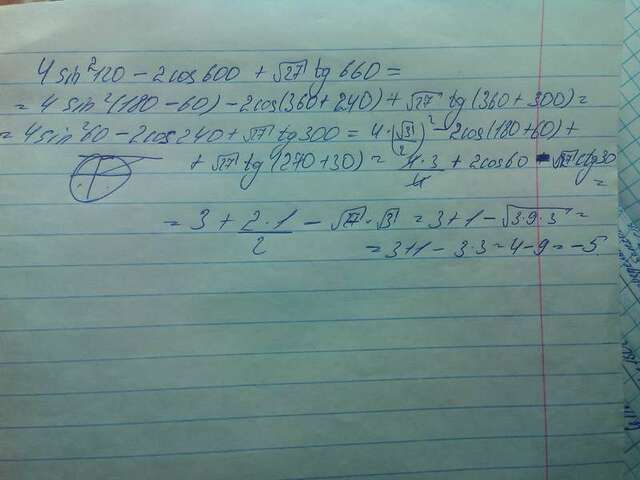 4 sin²120 − 2cos600 + √27 tg 660 =
= 4 sin²(180 − 60) − 2cos(360 + 240) + √27 tg(360 + 300) =
= 4sin²60 − 2cos240 + √27 tg300 = 4·(√3/2)² − 2cos(180+60) +
+ √27 tg(270+30) = 4·3/4 + 2cos60 − √27 ctg30 =
= 3 + 2·1/2 − √27·√3 = 3+1 − √3·9·3 =
= 3+1 − 3·3 = 4−9 = −5